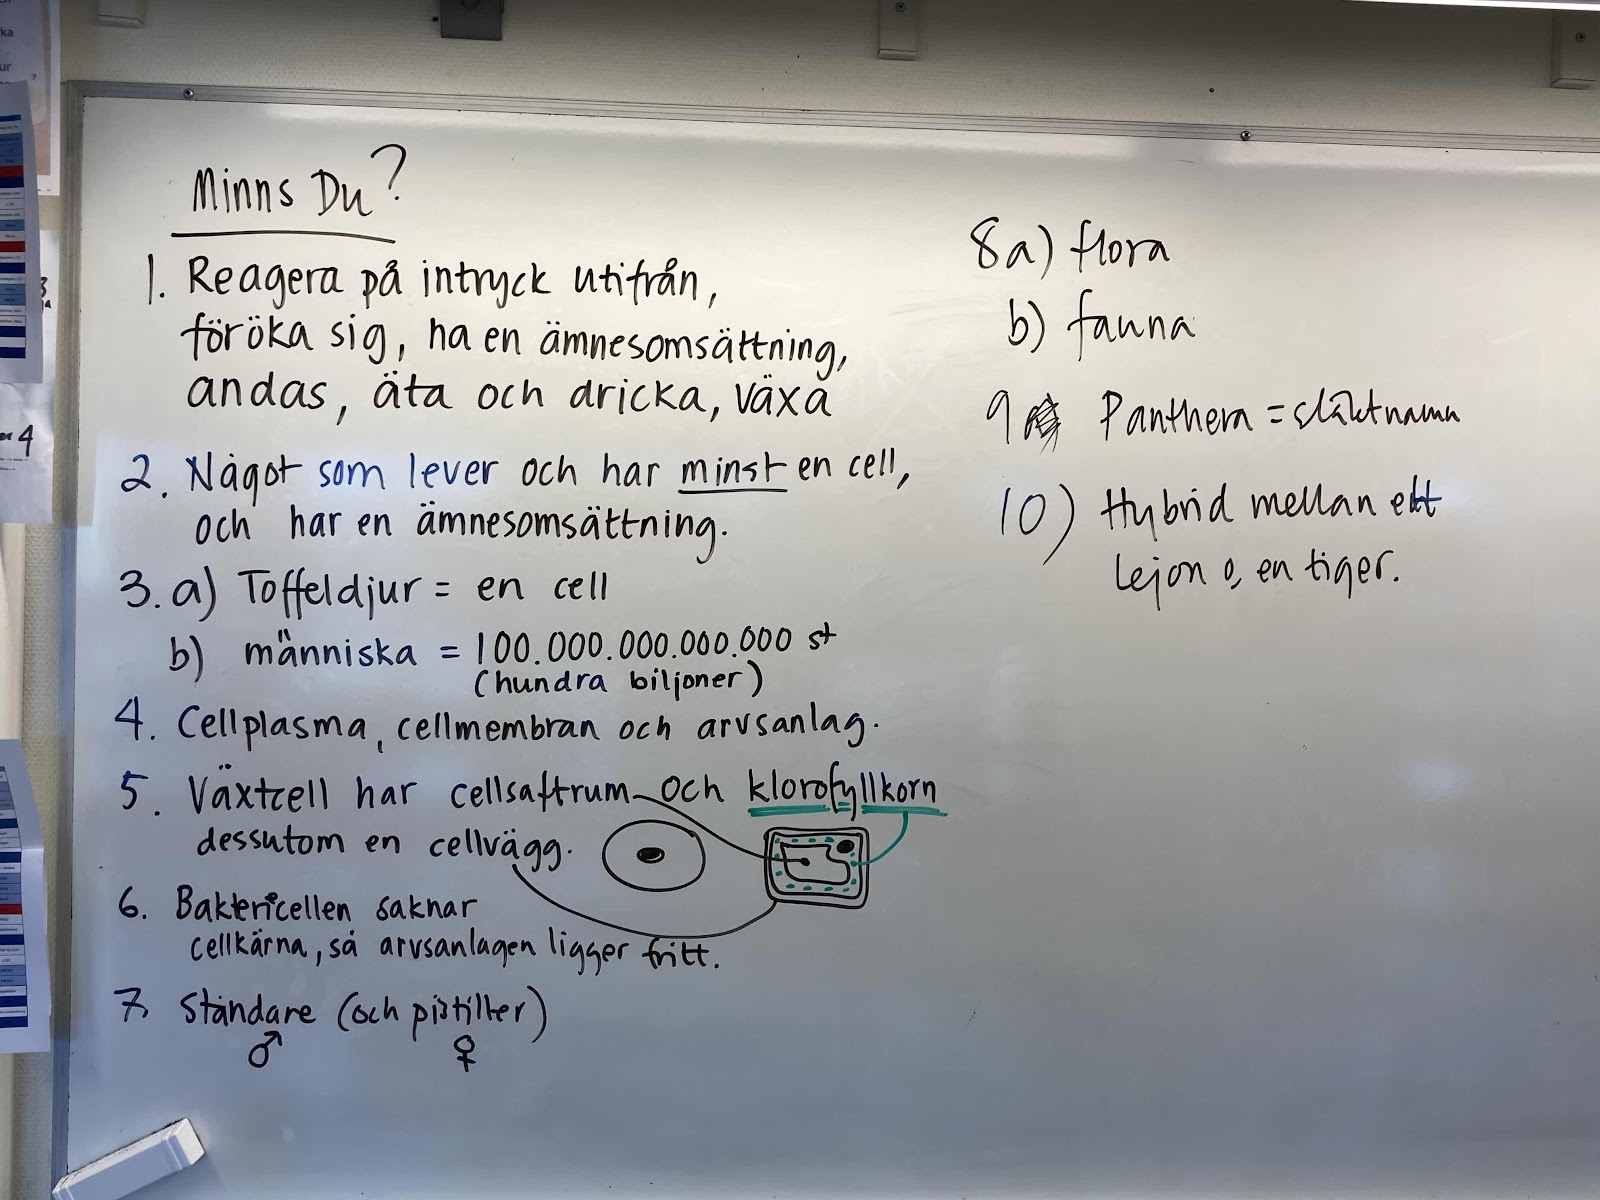 Minns Du?
1. Reagera på intryck utifrån,
föröka sig, ha en ämnesomsättning,
andas, äta och dricka, växa
2. Något som lever och har minst en cell,
och har en ämnesomsättning.
3. a) Toffeldjur = en cell
b) människa = 100.000.000.000.000 st
(hundra biljoner)
4. Cellplasma, cellmembran och arvsanlag.
5. Växtcell har cellsaftrum och klorofyllkorn
dessutom en cellvägg.
6. Baktericellen saknar
cellkärna, så arvsanlagen ligger fritt.
7. Ståndare (och pistiller)
♂ ♀
8a) flora
b) fauna
9 Panthera = släktnamn
10) Hybrid mellan ett
lejon o, en tiger.
4